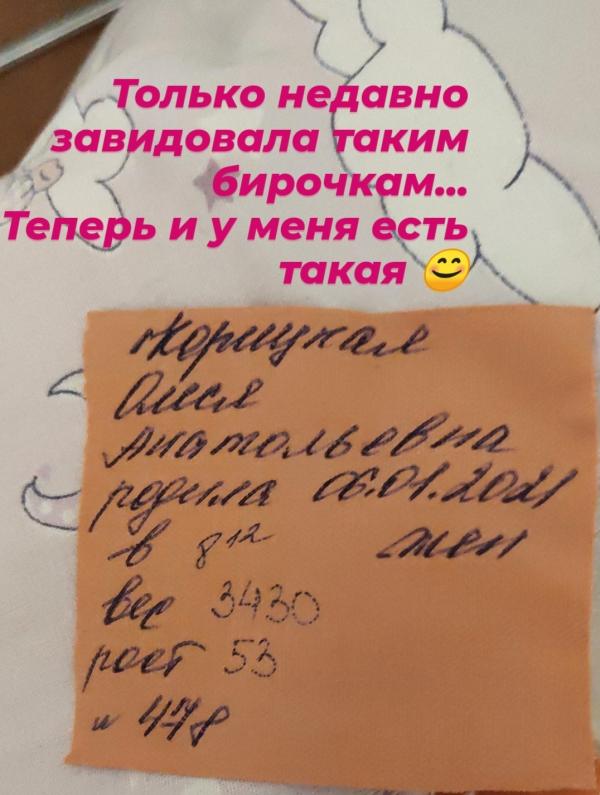 Только недавно
завидовала таким
бирочкам...
Теперь и у меня есть
такая 😊
Олеся
Анатольевна
родила 06.01.2021
в 8¹² жен
вес 3430
рост 53
и 478